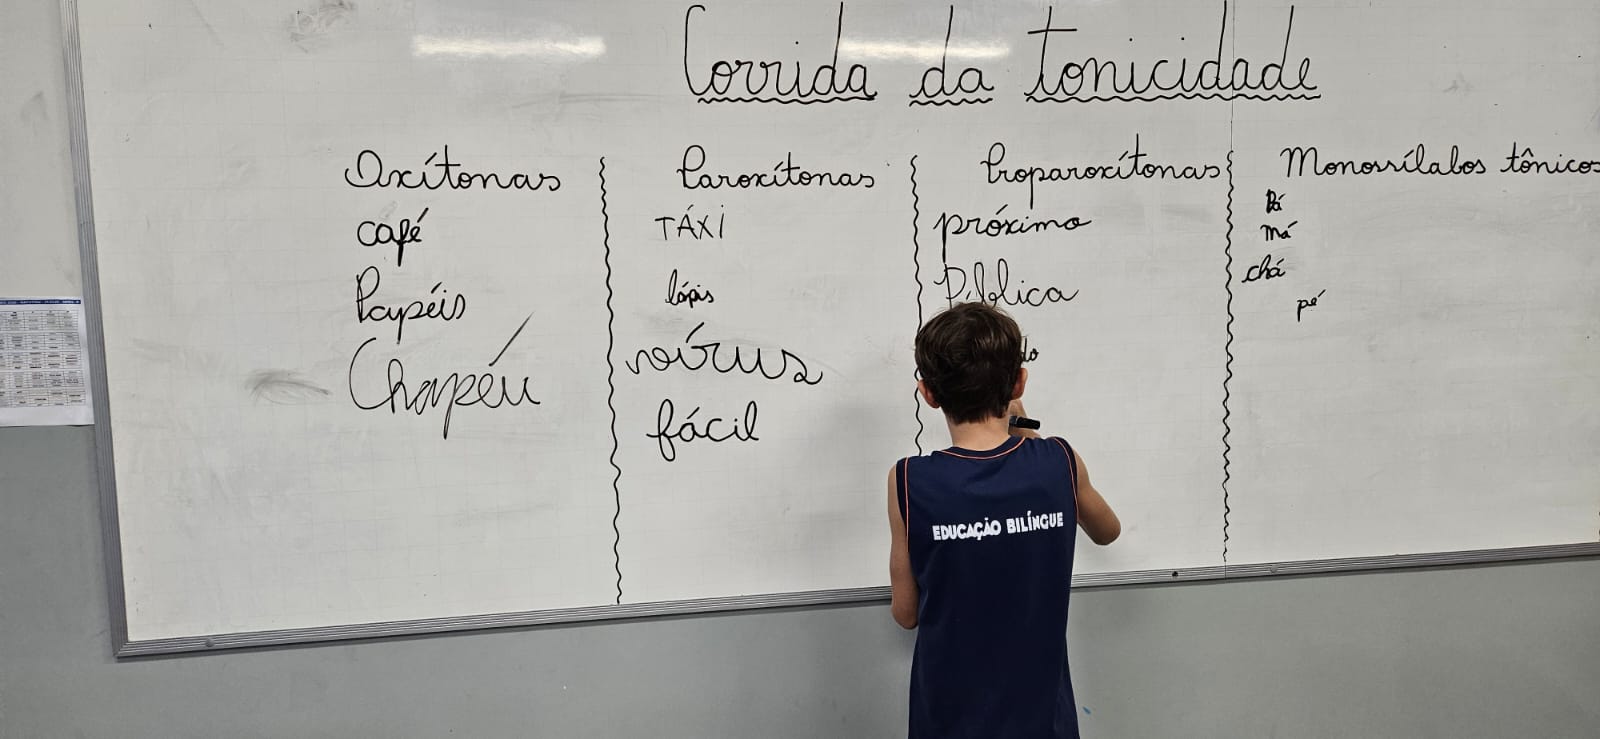 Corrida da tonicidade
Oxítonas
café
Papéis
Chapéu
Paroxítonas
TÁXI
lápis
vírus
fácil
Proparoxítonas
próximo
Monossílabos tônicos
Pá
má
chá
pé
EDUCAÇÃO BILÍNGUE